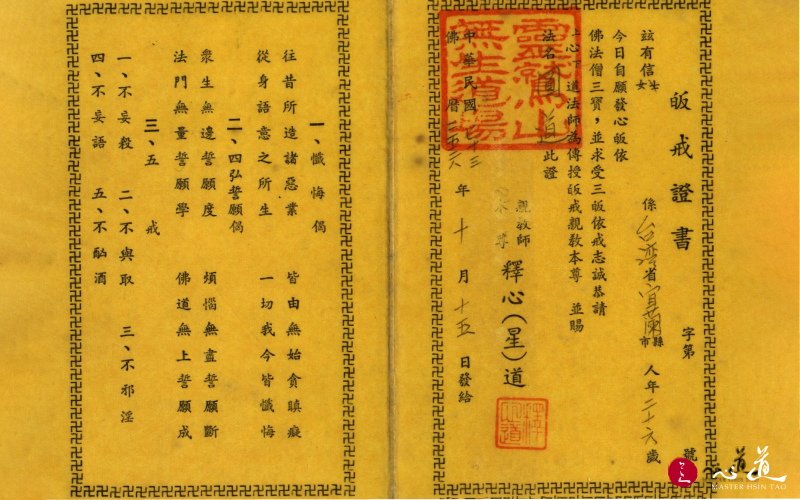 皈戒證書
字第 號
該有信士女 係台灣省宜蘭縣市 人年二十六歲
今日自願發心皈依
佛法僧三寶，並求受三皈依戒志誠恭請
上心下道法師為傳授皈戒親教本尊 並賜
法名圓道此證
靈鷲山
無生道場
親教師
釋心(星)道
中華民國七十三
佛曆
年十月十五日發給
一、懺悔偈
往昔所造諸惡業 皆由無始貪瞋癡
從身語意之所生 一切我今皆懺悔
二、四弘誓願偈
衆生無邊誓願度 煩惱無盡誓願斷
法門無量誓願學 佛道無上誓願成
三、五戒
一、不妄殺 二、不與取 三、不邪淫
四、不妄語 五、不酤酒
心道
MASTER HSIN TAO